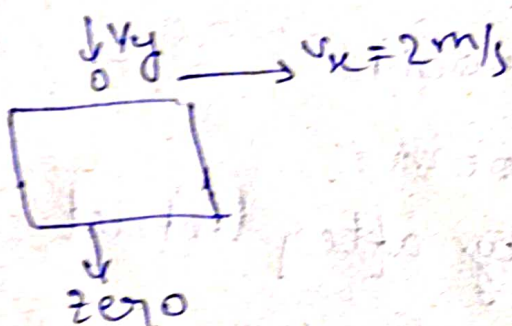 ↓Vy
0 → Vx = 2m/s
zero